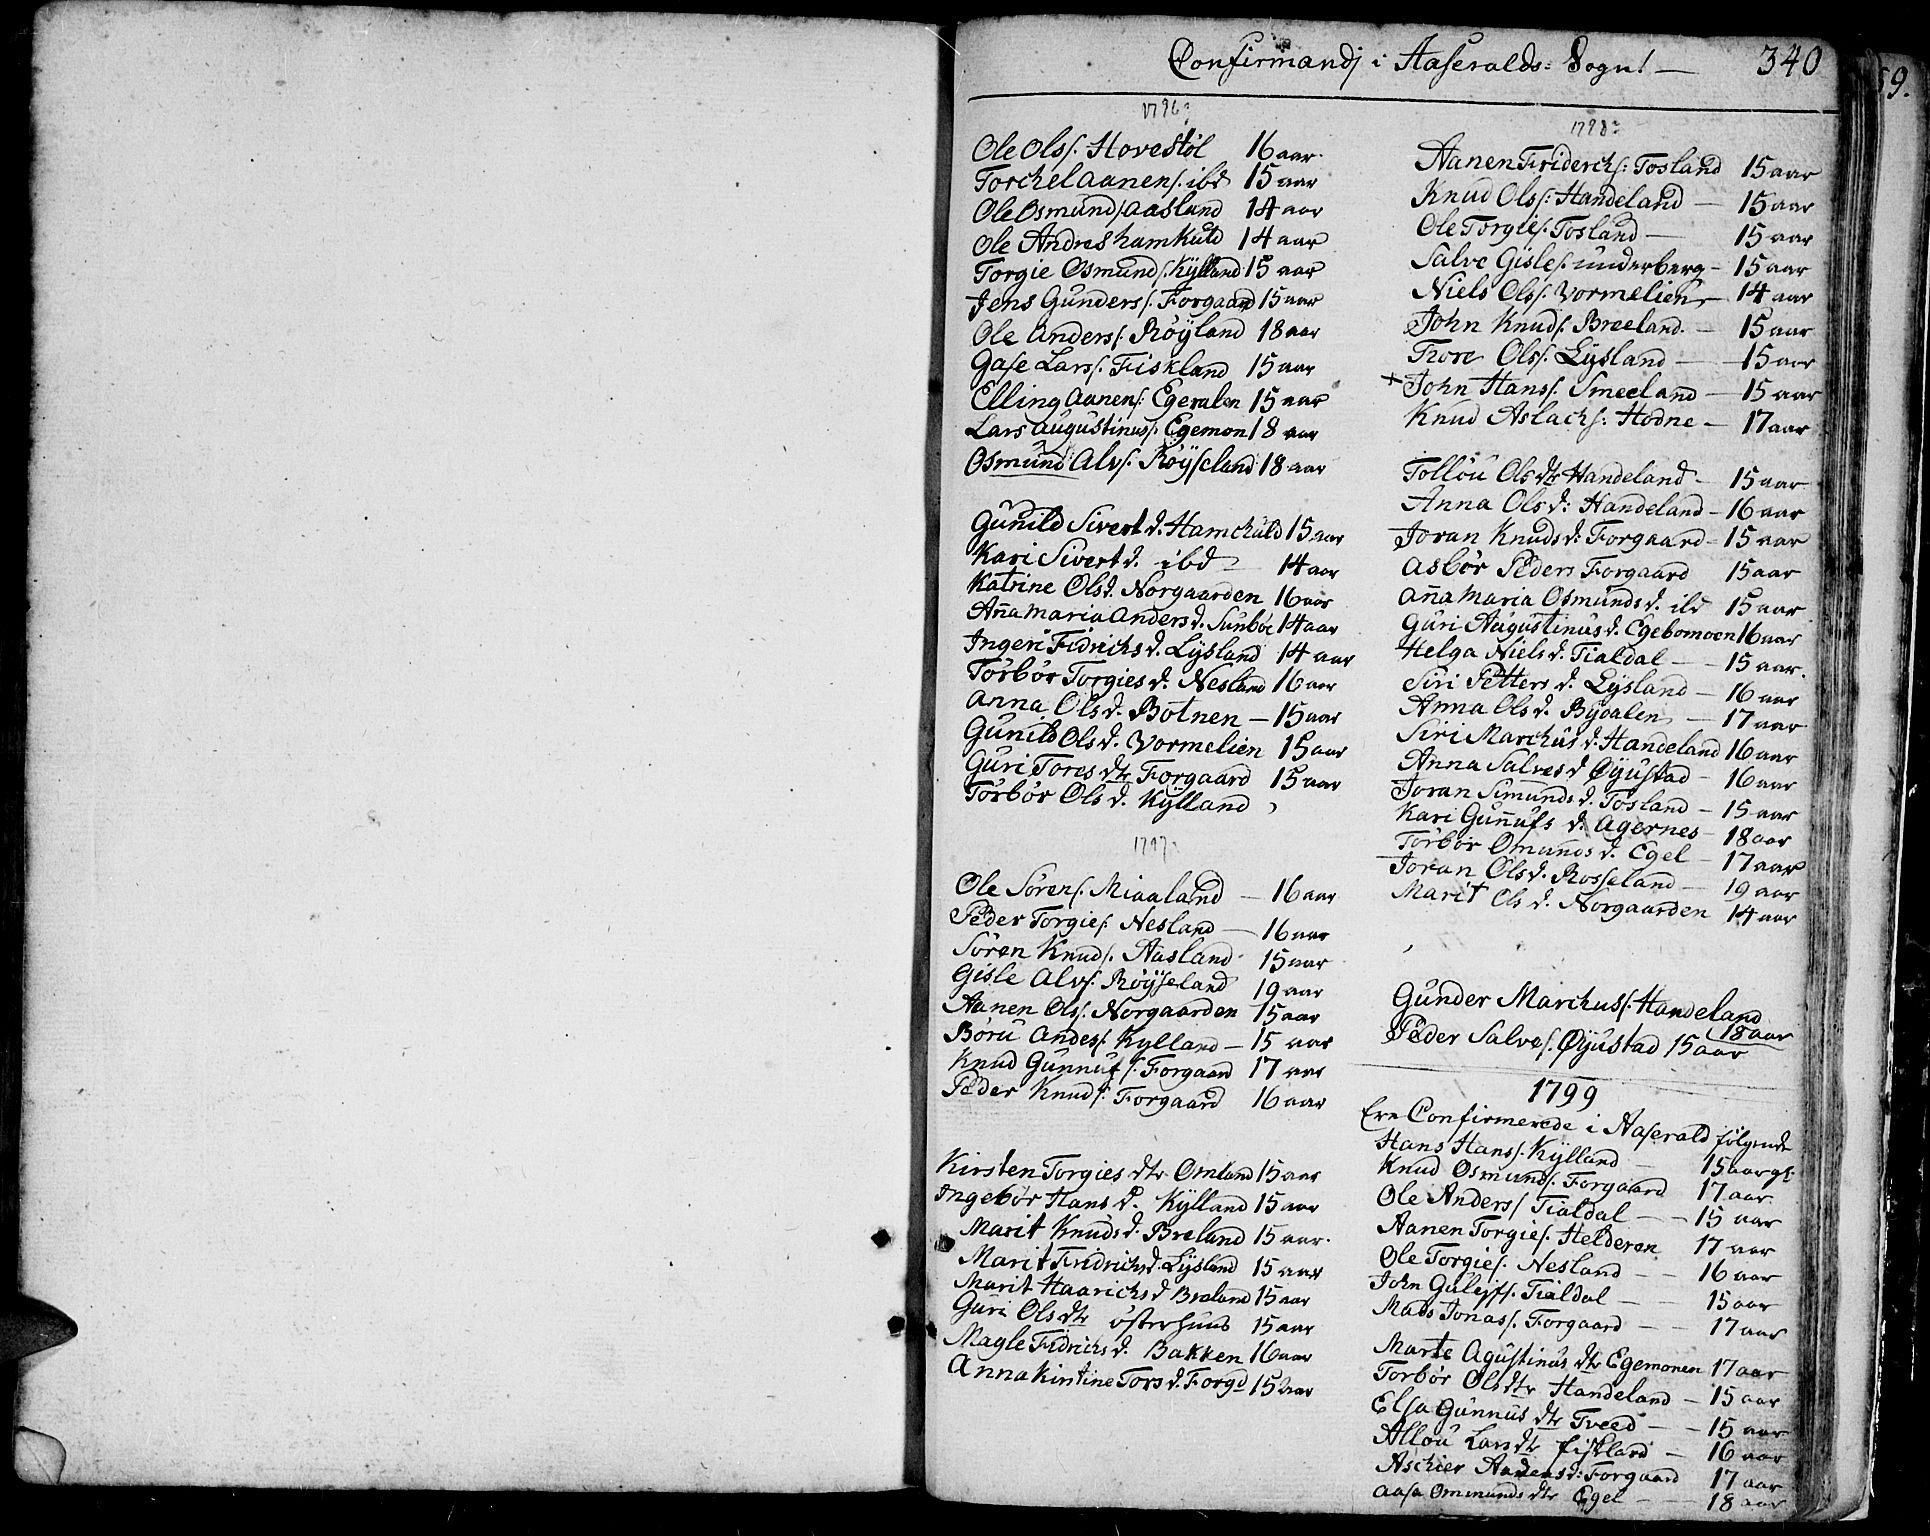 Confirmandj i Aaseralds: Sogn! — 340
59.
1796?
Ole Ols/. Hovestøl 16 aar.
Torchel Aanen/. ibd 15 aar
Ole Osmund/ Aasland 14 aar
Ole Andres hamkuld 14 aar
Torgie Osmund/. Kÿlland 15 aar
Jens Gunders/. Forgaard 15 aar
Ole Anders/. Røÿland 18 aar
Gase Lars/. Fiskland 15 aar
Elling Aanens/: Egeralen 15 aar
Lars Augustinus/. Egemon 18 aar
Osmund Alvs/. Røÿseland 18 aar
Gunild Sivert d. Hamchuld 15 aar
Kari Sivert d. ibd — 14 aar
Katrine Olsd. Norgaarden 16 aar
Aña Maria Anders d. Sunbøe 14 aar
Ingeri Fidrichs d. Lÿsland 14 aar
Torbør Torgies d. Nesland 16 aar
Anna Ols d. Botnen — 15 aar
Gunild Ols d. Vormelien 15 aar
Guri Tores dtr Forgaard 15 aar
Torbør Ols d. Kÿlland
1797?
Ole Sørens/. Miaaland — 16 aar
Peder Torgies/: Nesland — 16 aar
Søren Knuds/. Aasland 15 aar
Gisle Alvs/. Røÿseland 19 aar
Aanen Ols/. Norgaarden 15 aar
Børu Andes/. Kylland — 15 aar
Knud Gunnufs/: Forgaard 17 aar
Peder Knuds/: Forgaard 16 aar
Kirsten Torgies dtr Omland 15 aar
Ingebør Hans d. Kÿlland 15 aar
Marit Knuds d. Breland 15 aar.
Marit Fridrichs d. Lÿsland 15 aar
Marit Haarichs d Breland 15 aar
Guri Ols dtr østerhuus 15 aar
Magle Fidrichs d. Bakken 16 aar
Anna Kirstine Tors d. Forgd 15 aar
1798?
Aanen Friderchs/: Tosland 15 aar
Knud Ols/: Handeland — 15 aar
Ole Torgies/. Tosland — 15 aar
Salve Gisles/. underberg — 15 aar
Niels Ols/. Vormelien — 14 aar
John Knuds/. Breeland. — 15 aar
Thore Ols/. Lÿsland — 15 aar
+ John Hans/. Smeeland — 15 aar
Knud Aslachs/: Hodne — 17 aar
Tolløu Ols dtr Handeland — 15 aar
Anna Ols d: Handeland — 16 aar
Joran Knuds d: Forgaard — 15 aar
Asbør Peders Forgaard 15 aar
Aña Maria Osmunds d. ibd 15 aar
Guri Augustinus d. Egebomoen 16 aar
Helga Niels d. Tialdal — 15 aar.
Siri Petters d. Lÿsland — 16 aar
Anna Ols d. Bÿdalen — 17 aar
Siri Marchus d. Handeland 16 aar
Anna Salves d Øÿustad — 16 aar
Joran Simunds d. Tosland — 15 aar
Kari Guñufs d. Agernes — 18 aar
Torbør Omunds d. Egel — 17 aar
Joran Ols d. Rosseland — 19 aar
Marit Ols d. Norgaarden 14 aar
Gunder Marchus/. Handeland
18 aar
Peder Salves/. Øÿustad 15 aar
1799
Ere Confirmerede i Aaserald følgende
Hans Hans/. Kÿlland — 15 aar gl.
Knud Osmunds/. Forgaard 17 aar
Ole Anders/ Tialdal — 15 aar
Aanen Torgies/. Helderen 17 aar
Ole Torgies/. Nesland — 16 aar
John Guleifs/. Tialdal — 15 aar
Mads Jonas/. Forgaard — 17 aar
Marte Agustinus dtr Egemonen 17 aar
Torbør Ols dtr Handeland — 15 aar
Elsa Gunnus dtr Tveed — 15 aar
Alløu Lars dtr fiskland — 16 aar
Aschier Aanens d: Forgaard 17 aar
Aasa Ommunds dtr Egel — 18 aar